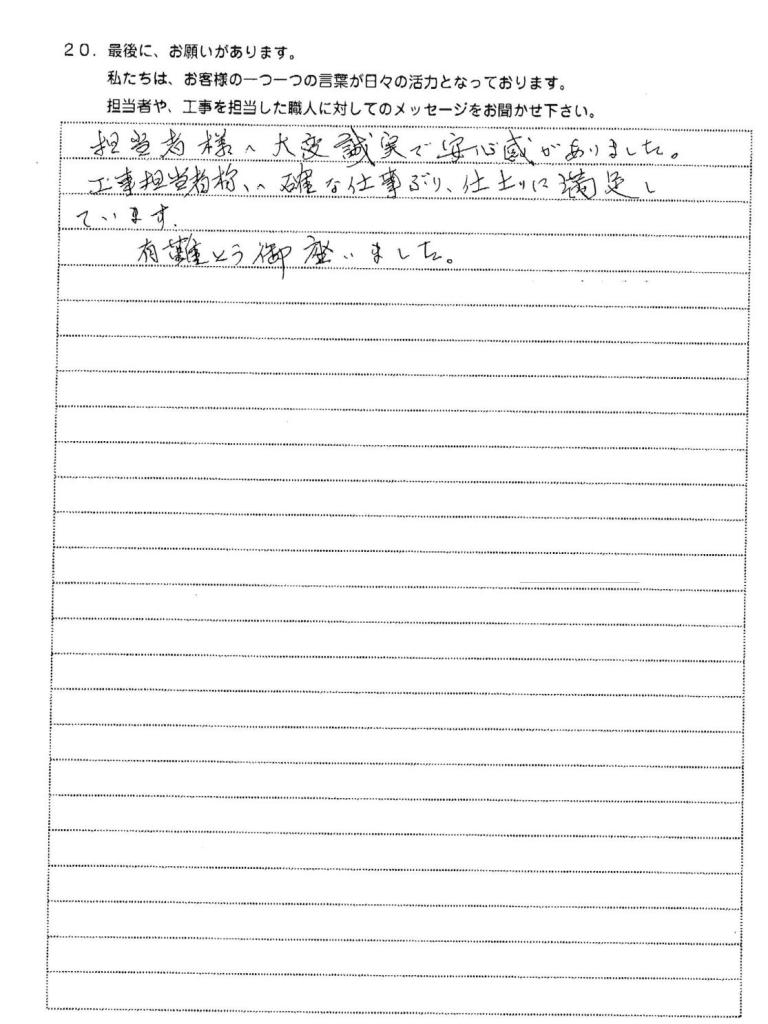 20. 最後に、お願いがあります。
私たちは、お客様の一つ一つの言葉が日々の活力となっております。
担当者や、工事を担当した職人に対してのメッセージをお聞かせ下さい。
担当者様へ 大変誠実で安心感がありました。
工事担当者様へ 確な仕事ぶり、仕上りに満足し
ています.
有難とう御座いました。